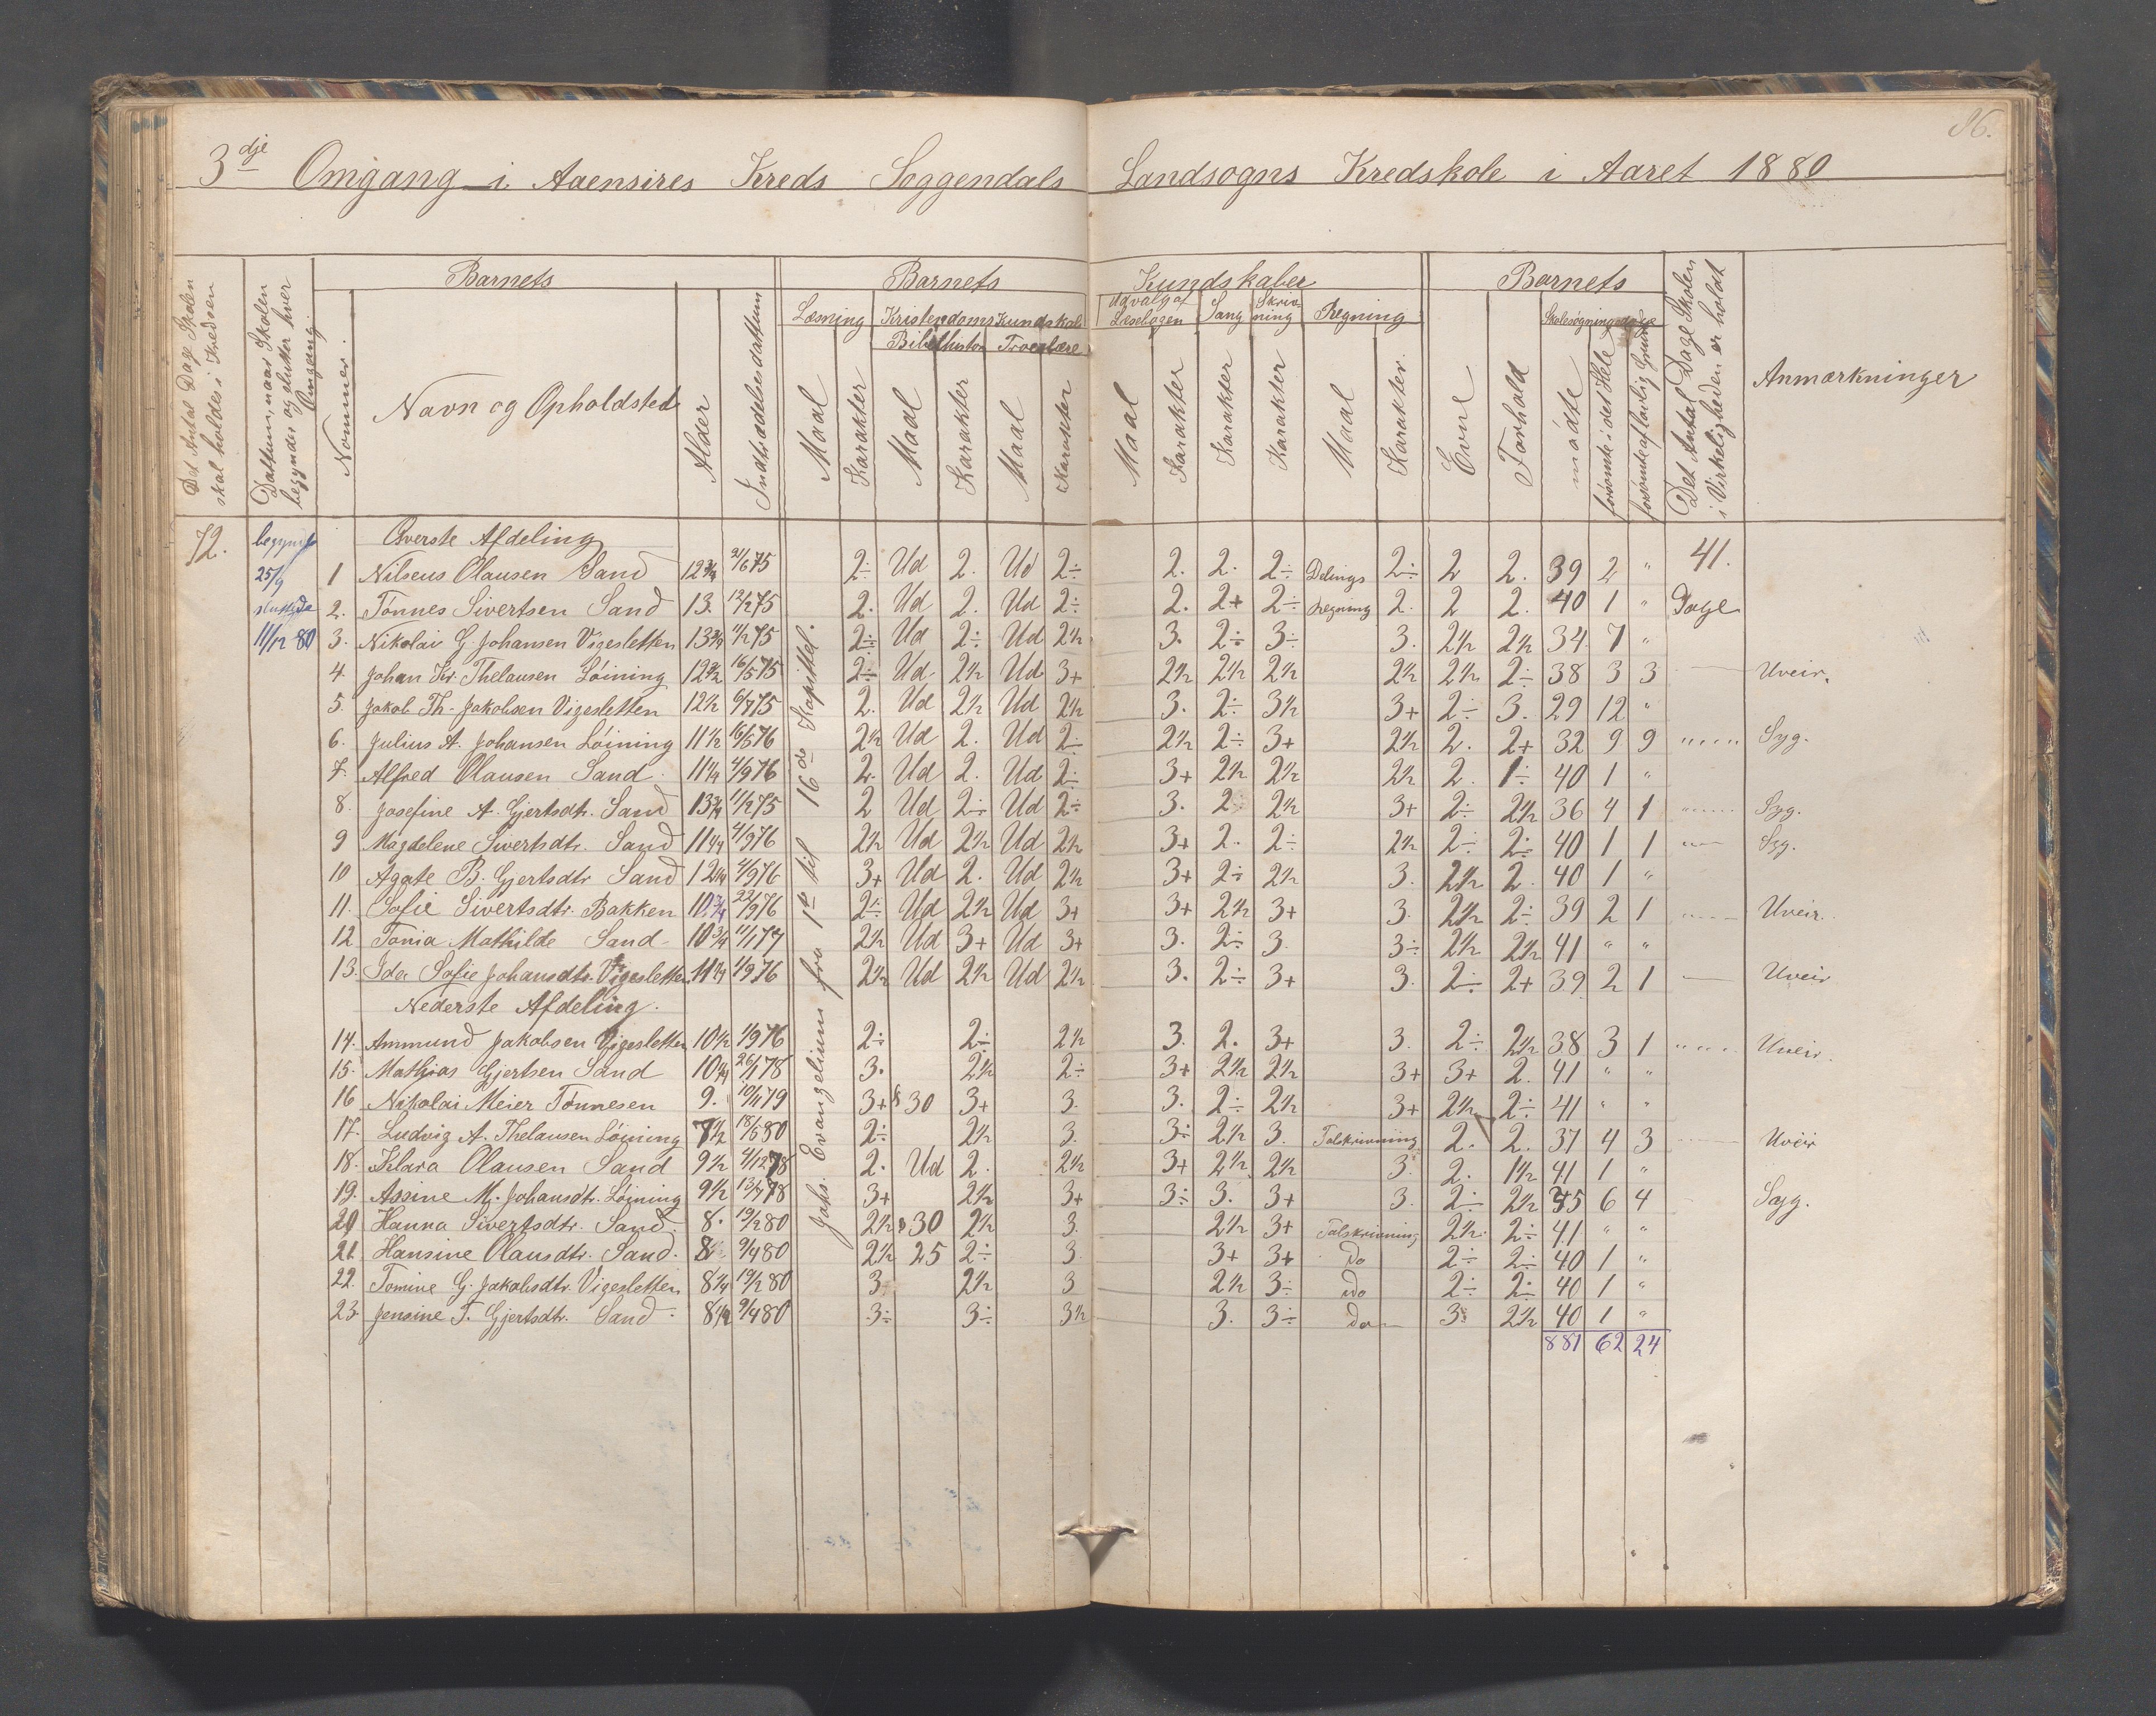 86.
3dje Omgang i Aaensires Kreds Soggendals Landsogns Kredskole i Aaret 1880
Det Antal Dage Skolen skal holdes i Kredsen
Dattum, naar Skolen begynder og slutter hver Omgang.
Nommer.
Barnets
Navn og Opholdsted
Alder
Indtrædelsesdattum
Barnets Kundskaber
Læsning Kristendomskundskab Udvalg af Læsebogen Sang Skrivning Regning
Bibelhistor Troeslære
Maal Karakter Maal Karakter Maal Karakter Maal Karakter Karakter Karakter Maal Karakter.
Barnets
Evne Forhold
Skolesøgningsdage
mødte forsømte i det Hele forsømte af lovlig Grund
Det Antal Dage Skolen i Virkeligheden er holdt
Anmærkninger
72. begynt Øverste Afdeling
25/9 1 Nilseus Olausen Sand 12 3/4 2/6 75 2÷ Ud 2. Ud 2÷ 2. 2. 2÷ Delings 2÷ 2 2. 39 2 " 41.
sluttede 2. Tønnes Sivertsen Sand 13. 12/2 75 2. Ud 2. Ud 2÷ 2. 2+ 2÷ regning 2. 2 2. 40 1 " Dage
11/12 80 3. Nikolai G. Johansen Vigesletten 13 3/4 11/2 75 2÷ Ud 2÷ Ud 2½ 3. 2÷ 3÷ 3. 2½ 2½ 34. 7 "
4. Johan Kr. Thelausen Løining 16/5 75 2÷ Ud 2½ Ud 3+ 2½ 2½ 2½ 2½ 2½ 2÷ 38 3 3 Uveir.
5. Jakob Th. Jakobsen Vigesletten 12½ 6/7 75 2. Ud 2½ Ud 2½ 3. 2÷ 3½ 3+ 2÷ 3. 29 12 "
6. Julius A. Johansen Løining 11½ 16/5 76 2½ Ud 2. Ud 2÷ 2½ 2÷ 3+ 2½ 2. 2+ 32 9 9 " " " " Syg.
7. Alfred Olausen Sand 11¼ 4/9 76 2. Ud 2. Ud 2÷ 3+ 2½ 2½ 2½ 2. 1÷ 40 1 "
8. Josefine A. Gjertsdtr. Sand 13 3/4 11/2 75 2 Ud 2÷ Ud 2÷ 3. 2 2½ 3+ 2÷ 2½ 36 4 1 Syg.
9 Magdelene Sivertsdtr. Sand 11¼ 4/9 76 2½ Ud 2½ Ud 2½ 3+ 2. 2÷ 2½ 2÷ 2÷ 40 1 1 Syg.
10 Agate B. Gjertsdtr Sand 12¼ 4/9 76 3+ Ud 2. Ud 2½ 3+ 2÷ 2½ 3. 2½ 2. 40 1 "
11. Sofie Sivertsdtr. Bakken 10 3/4 22/9 76 2÷ Ud 2½ Ud 3+ 3+ 2½ 3+ 3. 2½ 2÷ 39 2 1 Uveir.
12 Tonia Mathilde Sand 10 3/4 11/1 77 2½ Ud 3+ Ud 3+ 3. 2÷ 3. 3÷ 2½ 2½ 41 " "
13. Ida Sofie Johansdtr. Vigesletten 11¼ 4/9 76 2½ Ud 2½ Ud 2½ 3. 2÷ 3+ 3. 2÷ 2+ 39 2 1 Uveir
Nederste Afdeling.
14. Ammund Jakobsen Vigesletten 10½ 1/9 76 2÷ 2÷ 2½ 3. 2. 3+ 3. 2÷ 2½ 38 3 1 " " " Uveir.
15. Mathias Gjertsen Sand 10¼ 26/1 78 3. 2½ 2÷ 3+ 2½ 2½ 3+ 3+ 2. 41 " "
16 Nikolai Meier Tønnesen 9. 10/11 79 3+ § 30 3+ 3. 3. 2÷ 2½ 3+ 2½ 2÷ 41 " "
17. Ludvig A. Thelausen Løining 7½ 18/5 80 2÷ 2½ 3. 3÷ 2½ 3. Talskrivning 2. 2. 37 4 3 Uveir
18. Klara Olausen Sand 9½ 4/12 78 2. Ud 2. 2½ 3+ 2½ 2½ 3. 2. 1½ 41 1 "
19. Assine M. Johansdtr. Løining 9½ 13/7 78 3+ 2½ 3+ 3÷ 3. 3+ 3. 2÷ 2½ 35 6 4 Syg.
20 Hanna Sivertsdtr. Sand 8. 19/2 80 2½ § 30 2½ 3. 2½ 3+ Talskrivning 2½ 2÷ 41 " "
21. Hansine Olausdtr. Sand. 8 9/4 80 2½ 25 2÷ 3. 3+ 3+ do 2÷ 2÷ 40 1 "
22. Tomine G. Jakobsdtr. Vigesletten 8¼ 19/2 80 3 2½ 3 2½ 3÷ do 2÷ 2÷ 40 1 "
23. Jensine T. Gjertsdtr. Sand 8½ 9/4 80 3÷ 3÷ 3½ 3. 3÷ do 3 2½ 40 1 "
881 62 24
Johs. Evangelium fra 1te til 16de Kapitel.